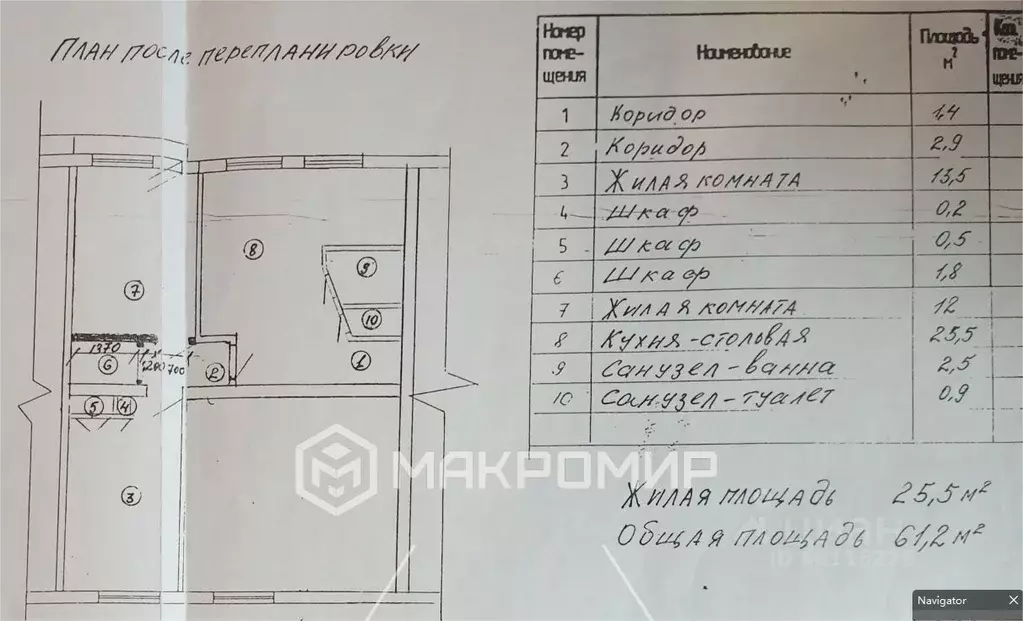 План после перепланировки
Номер помещения Наименование Площадь м²
1 Коридор 1,4
2 Коридор 2,9
3 Жилая комната 13,5
4 Шкаф 0,2
5 Шкаф 0,5
6 Шкаф 1,8
7 Жилая комната 12
8 Кухня-столовая 25,5
9 Санузел-ванна 2,5
10 Санузел-туалет 0,9
Жилая площадь 25,5 м²
Общая площадь 61,2 м²
8
9
7
10
1370
1200 700
6
2
1
5 4
3
МАКРОМИР
Navigator